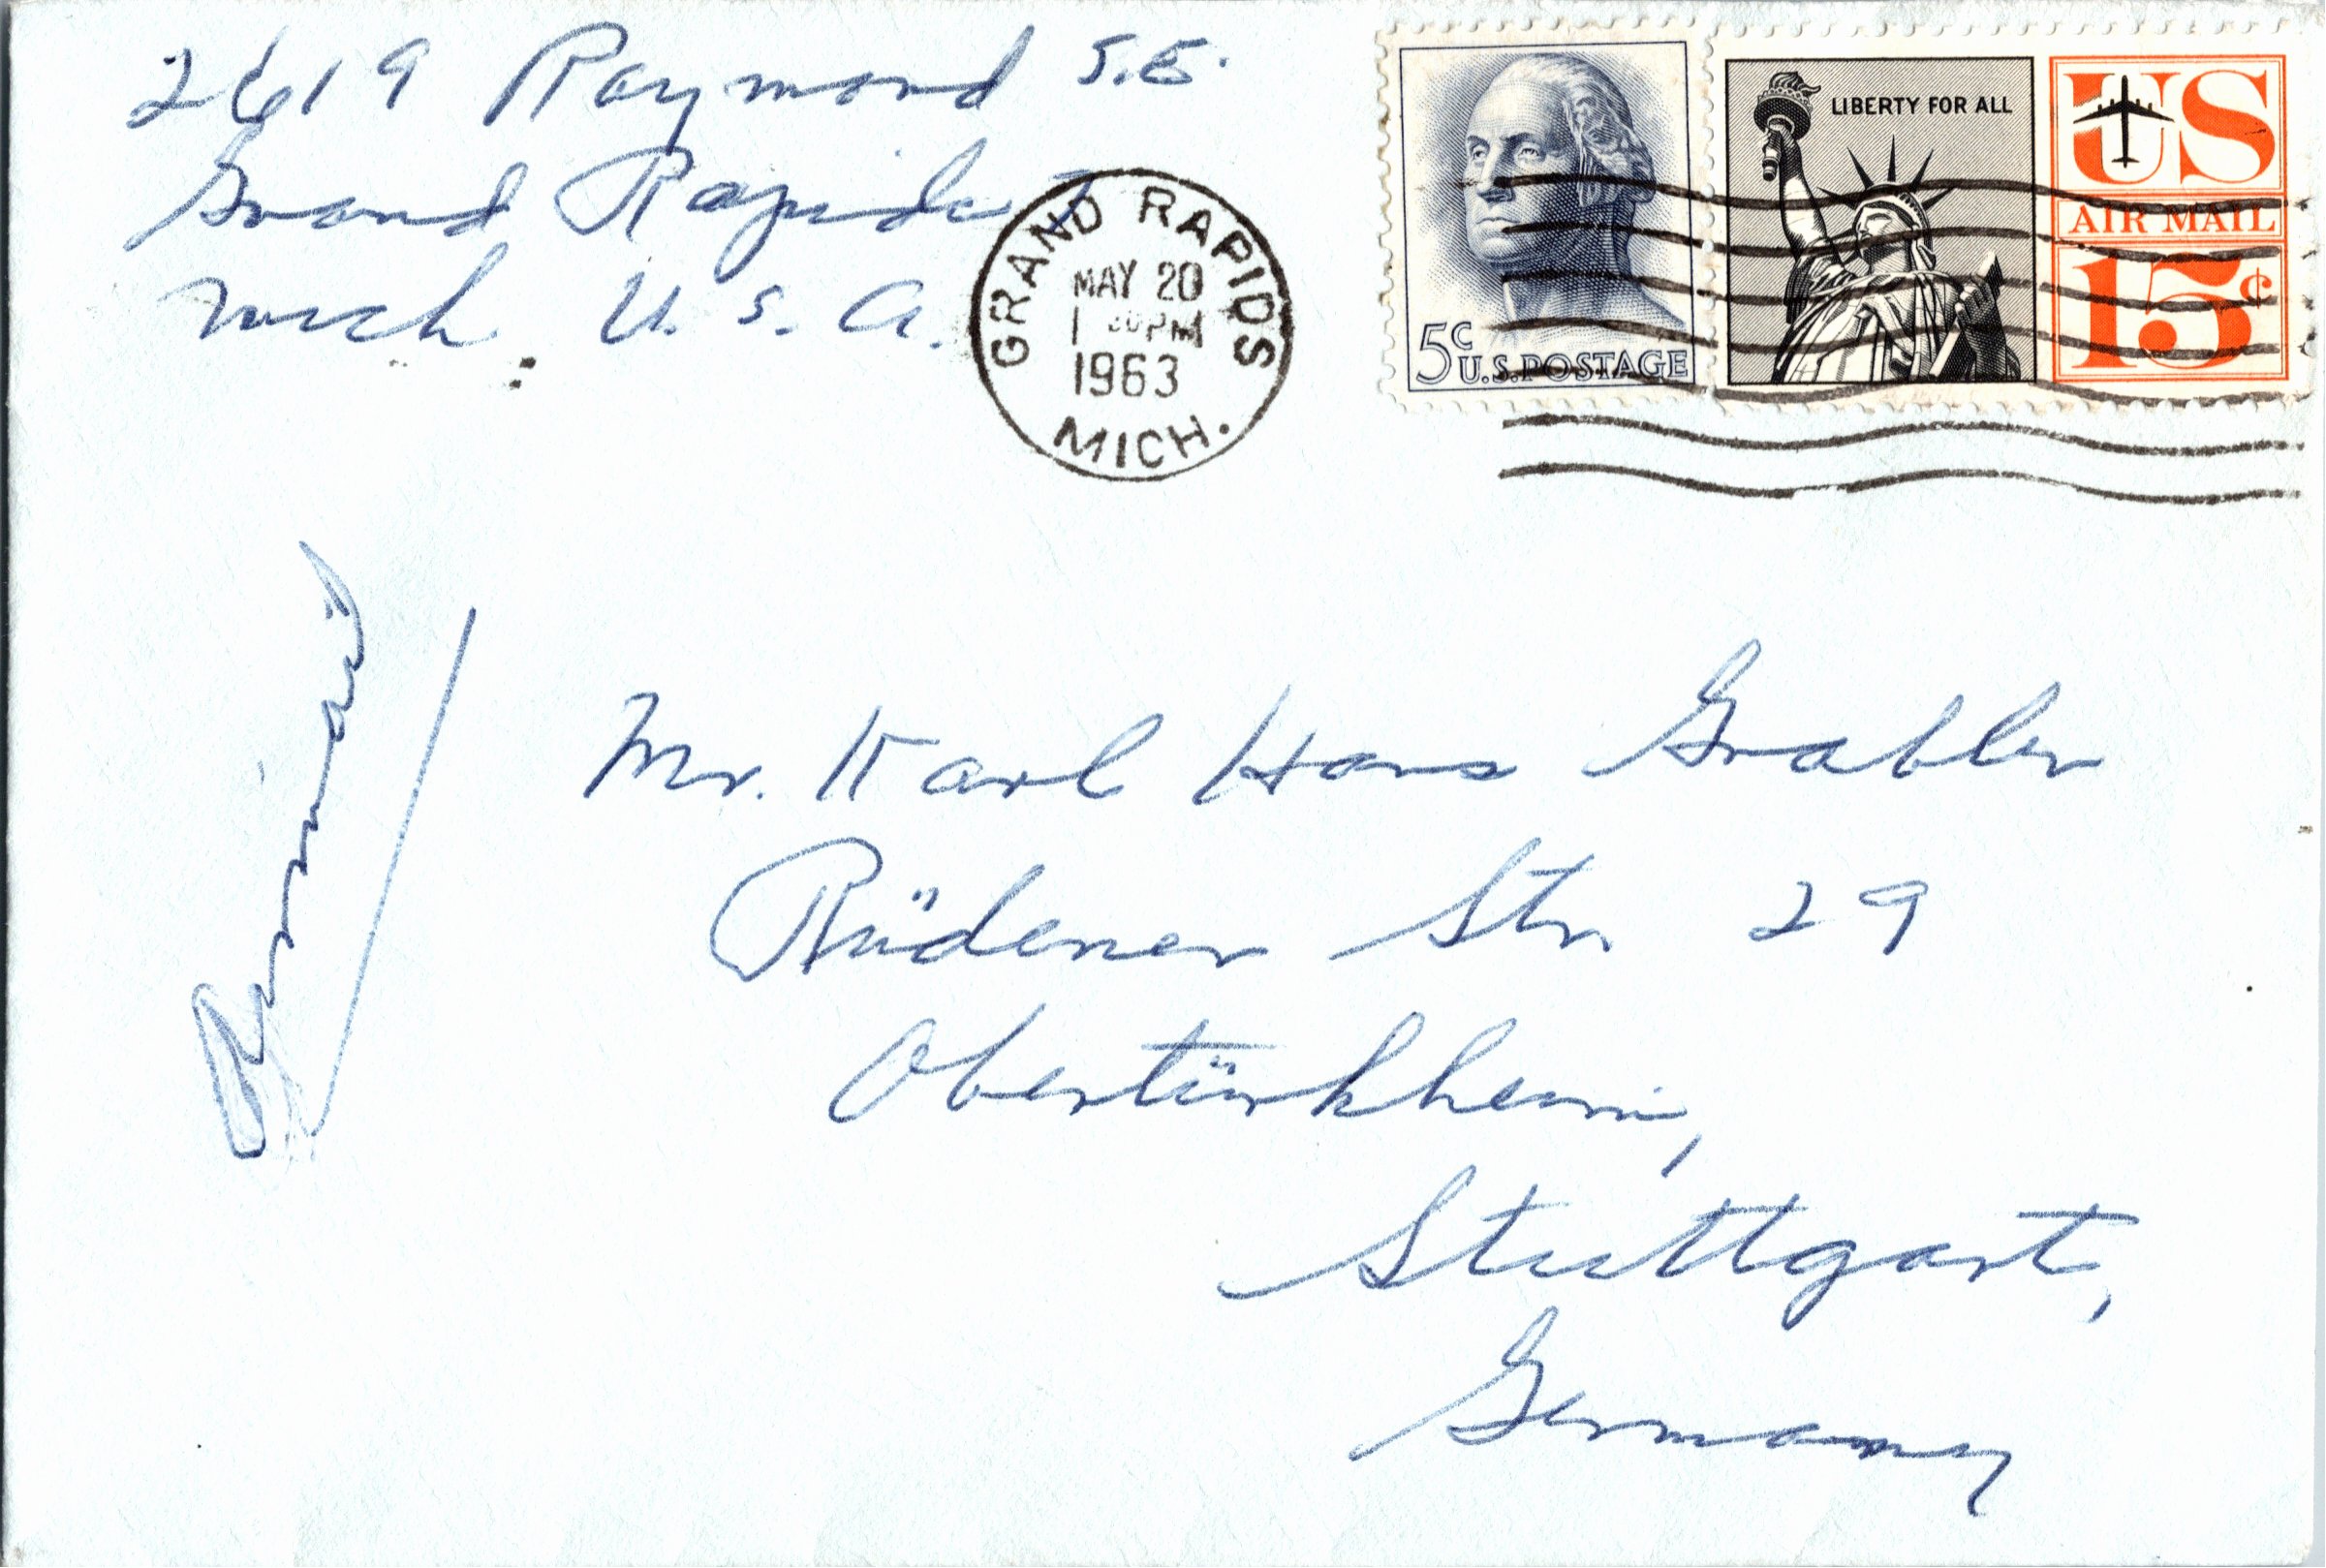 2619 Raymond S.E.
Grand Rapids 7
Mich. U. S. A.
GRAND RAPIDS
MAY 20
1 30 PM
1963
MICH.
5c
U.S. POSTAGE
LIBERTY FOR ALL
US
AIR MAIL
15¢
Mr. Karl Hans Grabler
Rüdener Str 29
Obertürkheim,
Stuttgart,
Germany